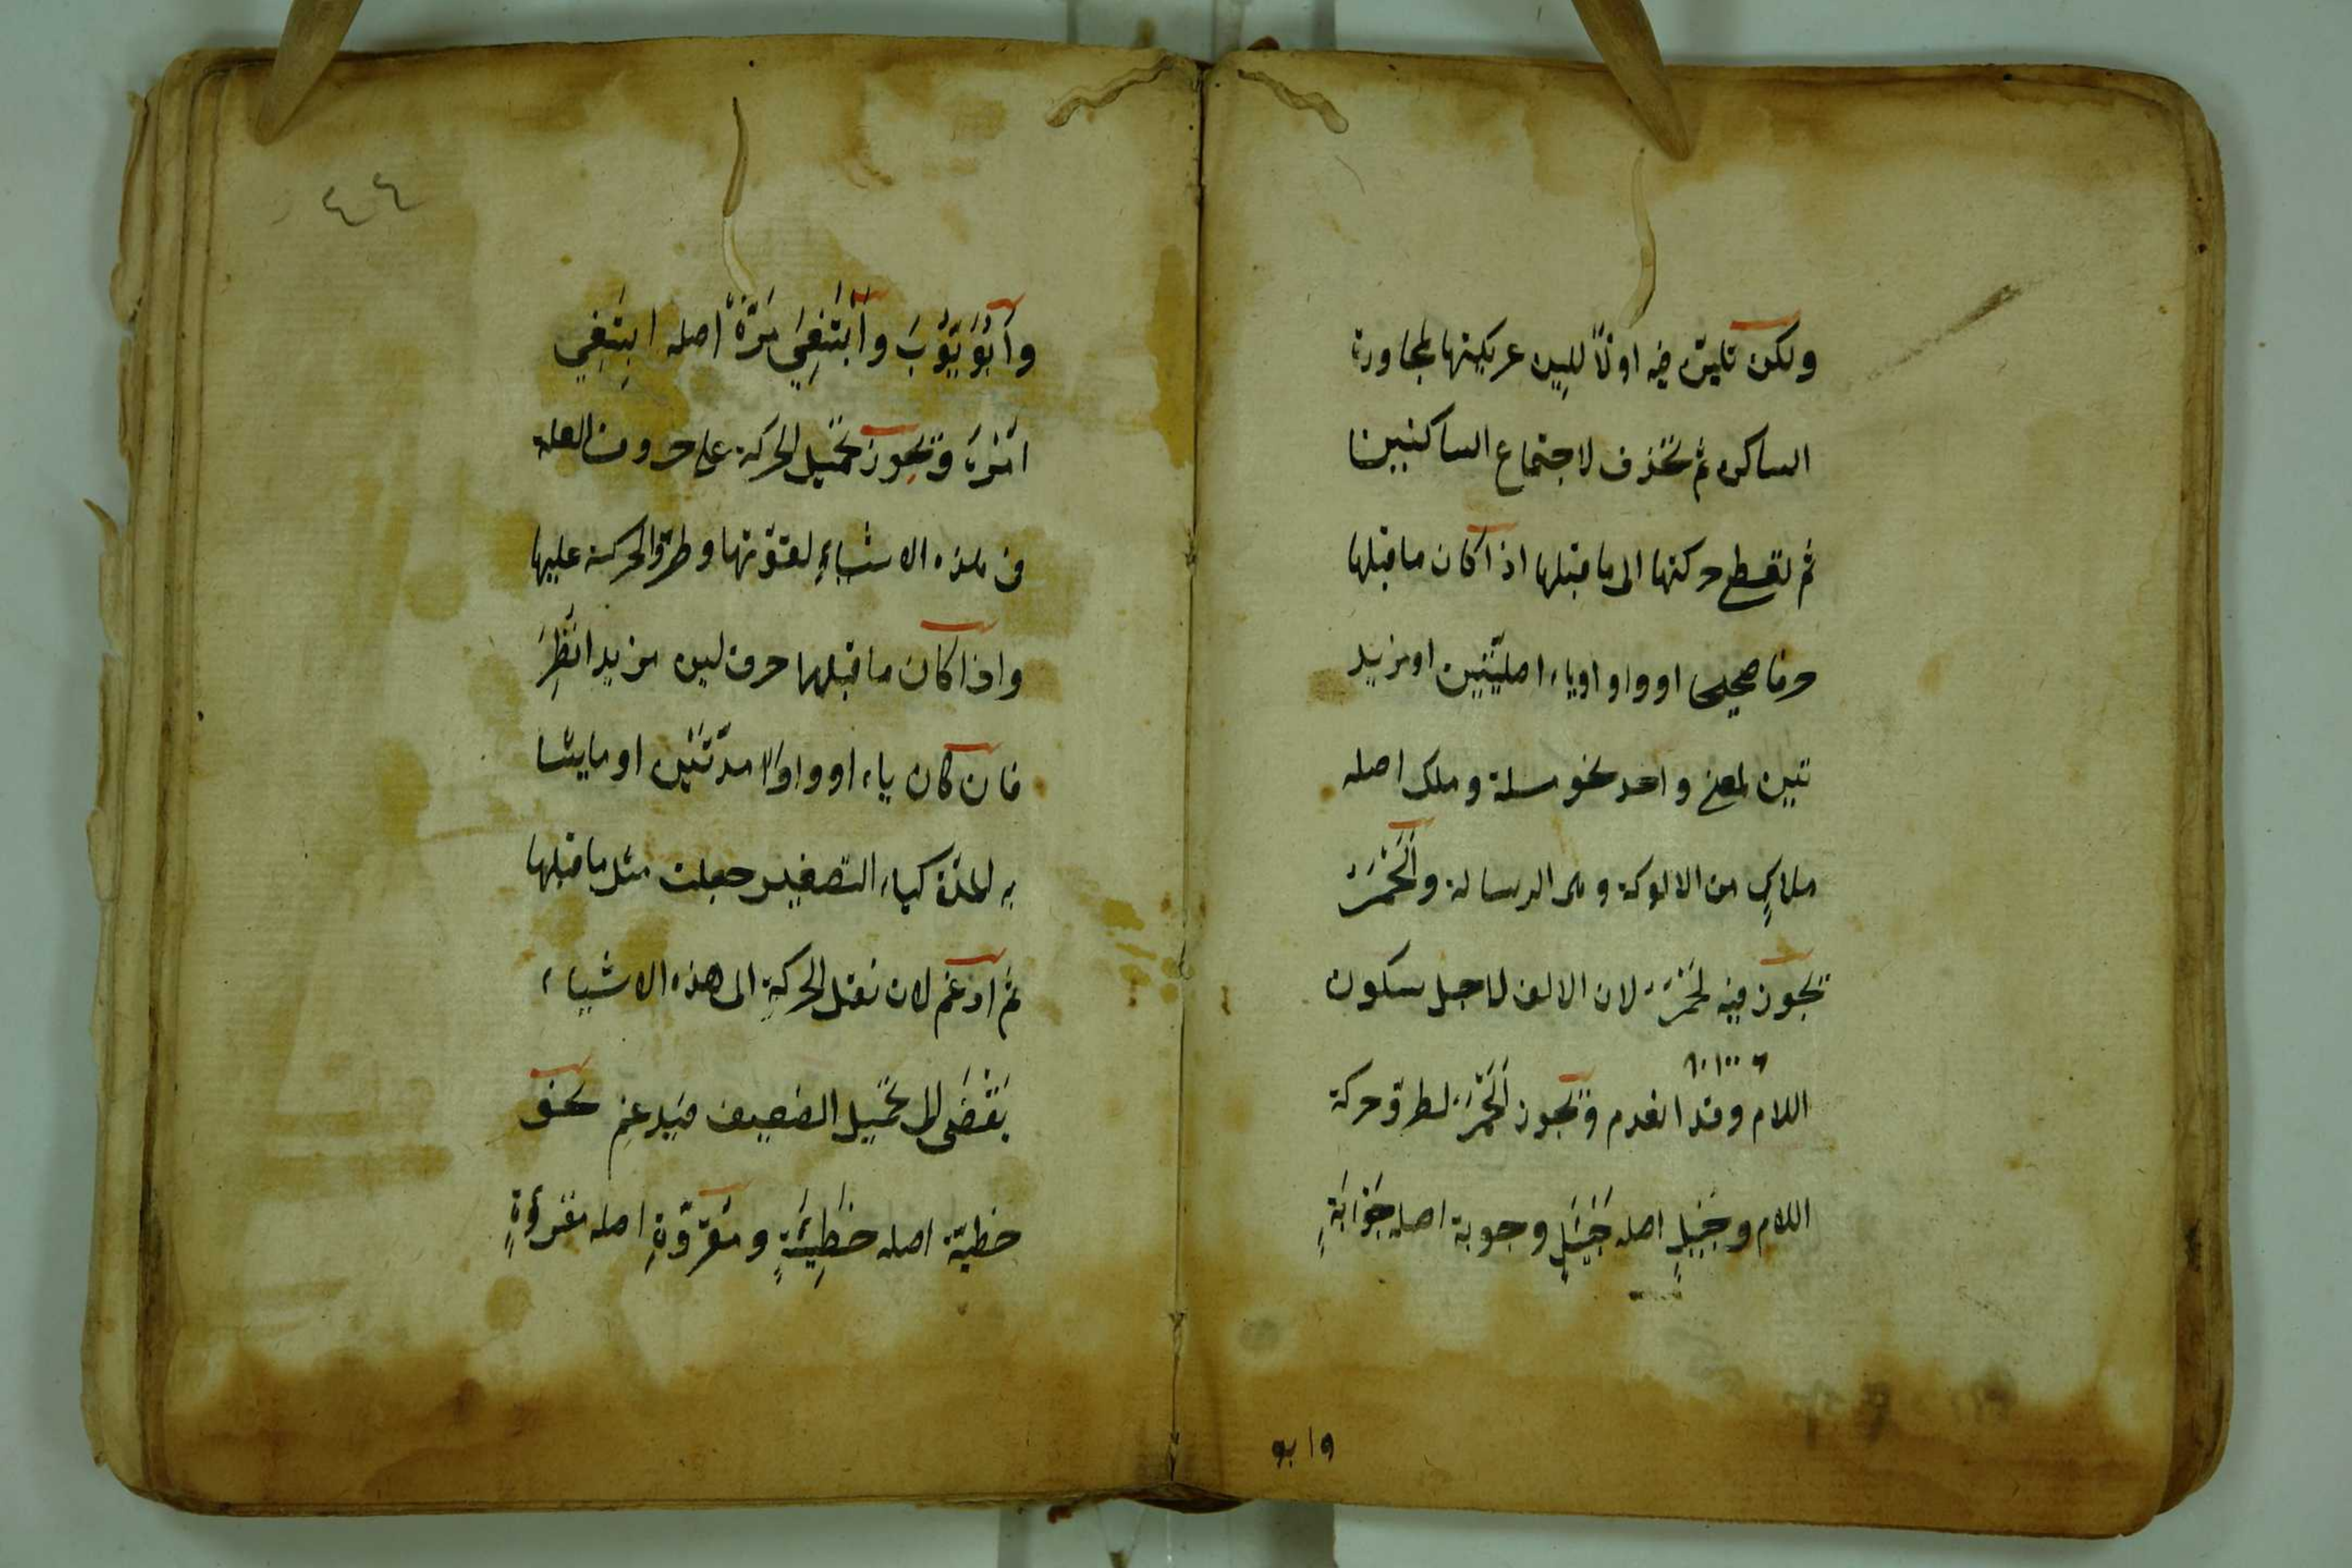 ولكن تليّن فيه اولًا للين عريكتها لمجاورة
الساكن ثم تحذف لاجتماع الساكنين
ثم تعطى حركتها الى ما قبلها اذا كان ما قبلها
حرفا صحيحا او واو او ياء اصليّتين او مزيد
تين لمعنى واحد نحو مسلة وملك اصله
ملاك من الالوكة وهى الرسالة والَحْمَرُ
تجوز فيه لَحْمَرُ لان الالف لاجل سكون
اللام وقد انعدم وتجوز اَلَحْمَرُ لطروّ حركة
اللام وجَيَلٍ اصله جَيْئَلٍ وجوبة اصله جَوْاَبَةٍ
وابو
٤٤
وَاَبُوَيُّوْبَ وَاَبْتَغِيَ مَرَّهُ اصله ابتَغِي
اَمْرَهُ وتجوز تحميل الحركة على حروف العلة
فى هذه الاشياءِ لقوّتها وطروّ الحركة عليها
واذا كان ما قبلها حرف لين مزيدا نُظِرَ
فان كان ياء او واوا مدّتَيْن او ما يشا
به المدّة كياء التصغير جعلت مثل ما قبلها
ثم ادغم لان نقل الحركةِ الى هذه الاشياء
يَقْضَى الى تحميل الضعيف فيدغم نحو
خطيّة اصله خَطِيْئَةٍ ومَقروّةٍ اصله مقرؤةٍ